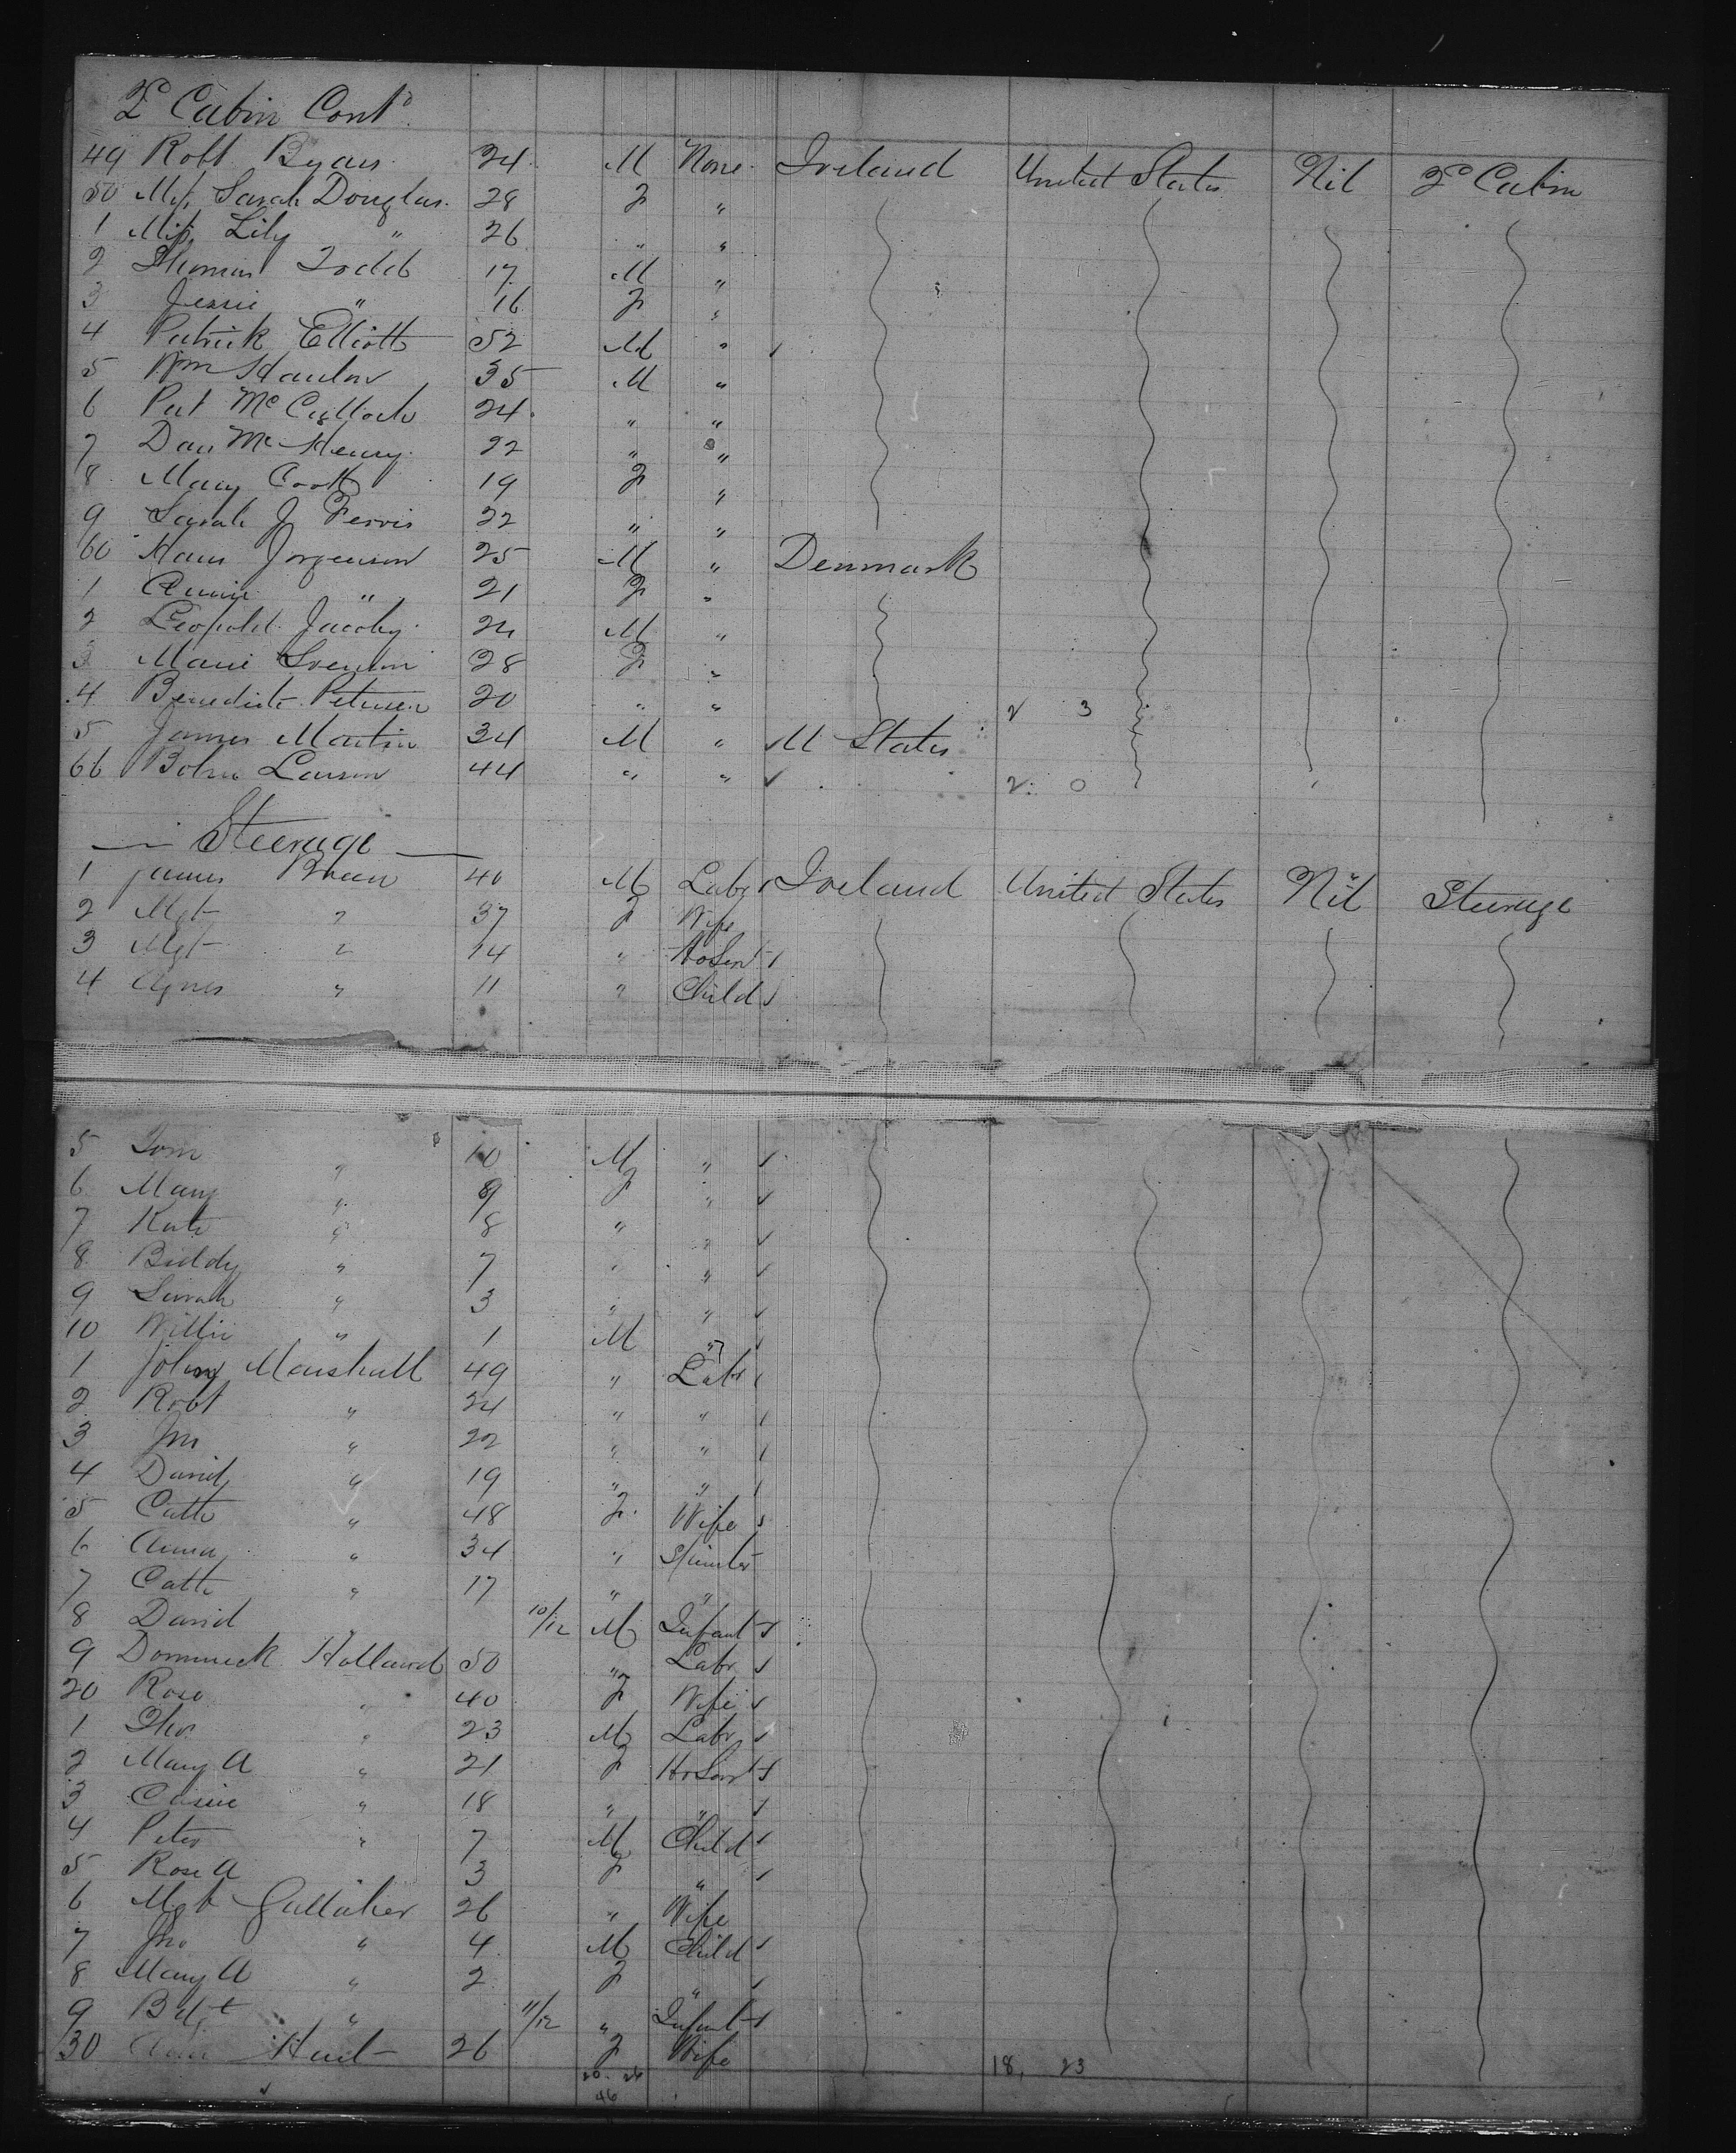 2d Cabin Contd
49 Robt Byars 24 M None Ireland United States Nil 2d Cabin
50 Miss Sarah Douglas 28 F "
1 Miss Lily " 26 " "
2 Thomas Todd 17 M "
3 Jessie " 16 F "
4 Patrick Elliott 52 M "
5 Wm Hanlon 35 M "
6 Pat McCulloch 24 " "
7 Dan McHenry 22 " "
8 Mary Cook 19 F "
9 Sarah J Ferris 22 " "
60 Hans Jorgenson 25 M " Denmark
1 Annie " 21 F "
2 Leopold Jacoby 24 M "
3 Marie Svenson 28 F "
4 Benedicte Petersen 20 " " 2 3
5 James Martin 34 M " U States
66 Larson 44 " " 2 0
Steerage
1 James 40 M Labr Ireland United States Nil Steerage
2 Mgt " 37 F Wife
3 Mgt " 14 " HoServt
4 Agnes " 11 " Child
5 Tom " 10 M "
6 Mary " 9 F "
7 Kate " 8 " "
8 Biddy " 7 " "
9 Sarah " 3 " "
10 Willie " 1 M "
1 John Marshall 49 " Labr
2 Robt " 24 " "
3 Jno " 22 " "
4 David " 19 " "
5 Cath " 48 F Wife
6 Anna " 34 " Spinster
7 Cath " 17 " "
8 David " 10/12 M Infant
9 Dominick Holland 50 " Labr
20 Rose " 40 F Wife
1 Thos " 23 M Labr
2 Mary A " 21 F HoServt
3 Cassie " 18 " "
4 Peter " 7 M Child
5 Rose A 3 F "
6 Mgt Gallaher 26 " Wife
7 Jno " 4 M Child
8 Mary A " 2 F "
9 Bdgt " 11/12 " Infant
30 Hunt 26 F Wife
18, 23
46